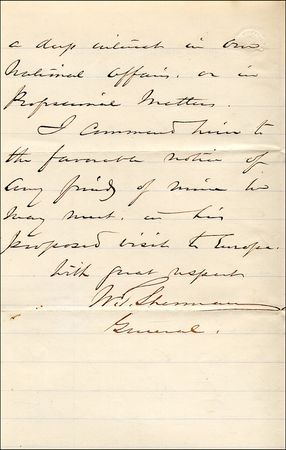 a deep interest in our
National Affairs, or in
Professional Matters.
I commend him to
the favorable notice of
any friends of mine he
may meet, in his
proposed visit to Europe.
With great respect
W. T. Sherman
General.